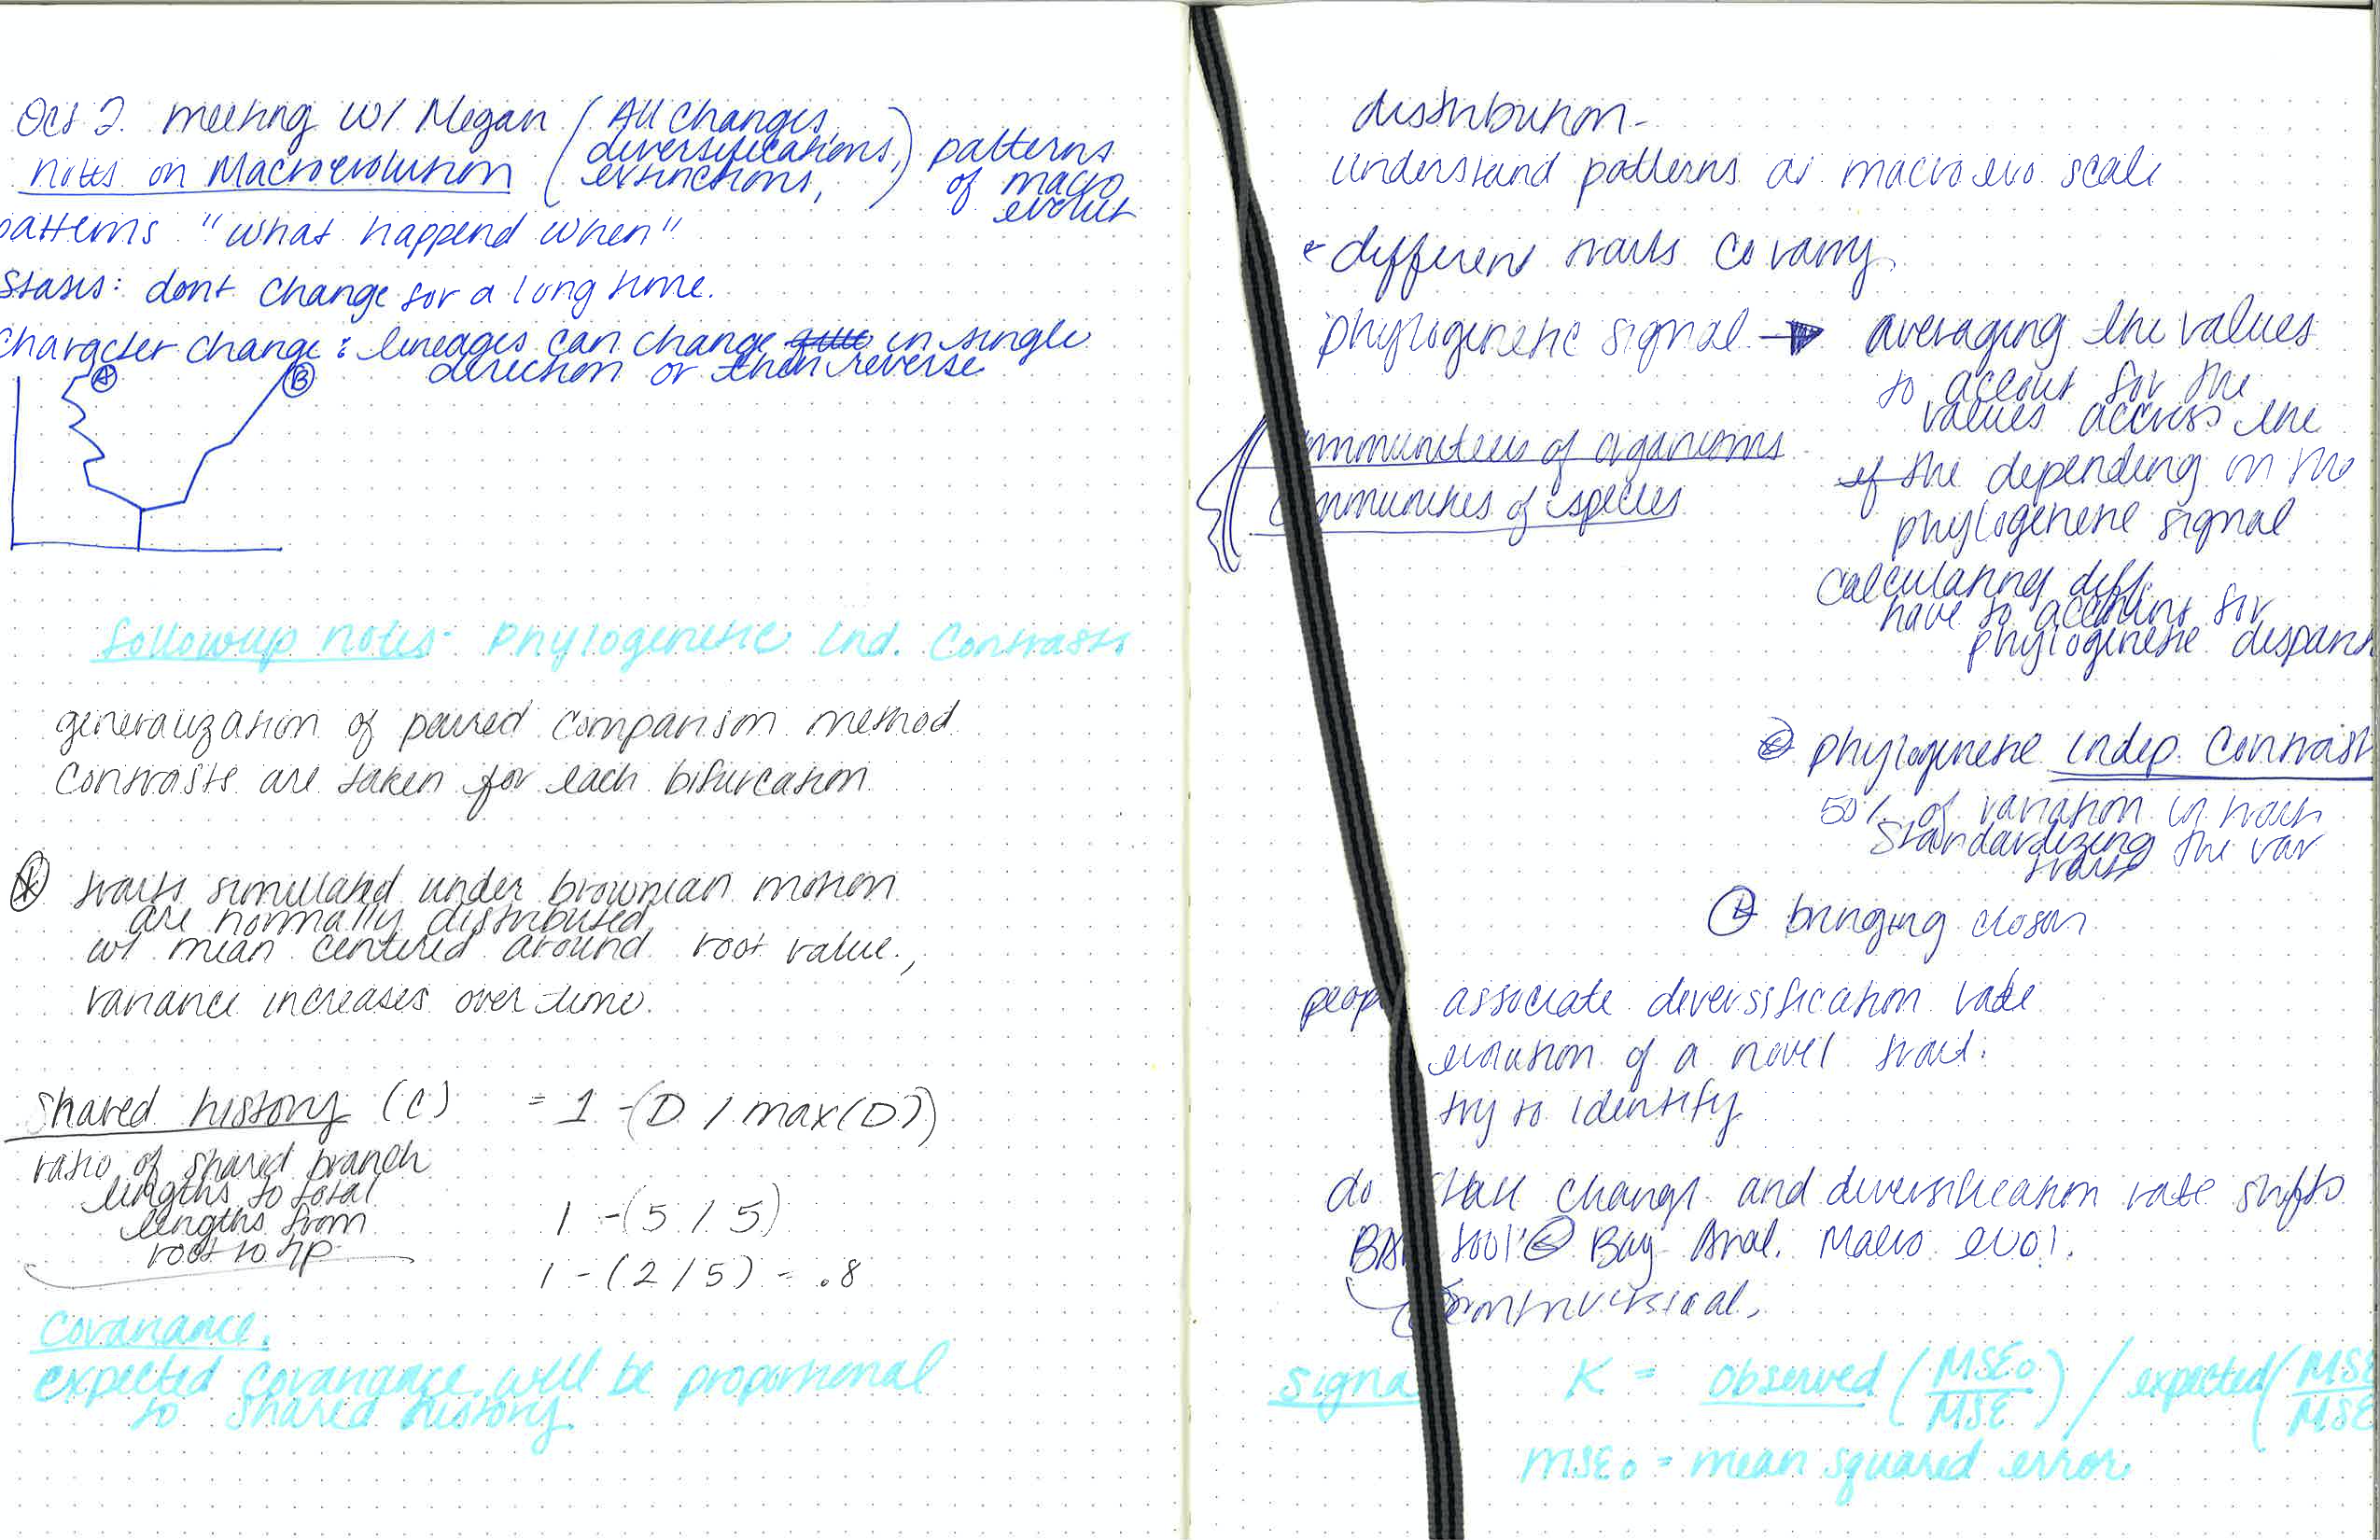 Oct 2. meeting w/ Megan (All changes, diversifications, extinctions,) patterns of macro evolut
notes on Macroevolution
patterns "what happend when"
Stasis: dont change for a long time.
Character change: lineages can change in single
direction or then reverse
A B
followup notes- Phylogenetic Ind. Contrasts
generalization of paired comparison method
Contrasts are taken for each bifurcation
traits simulated under brownian motion
are normally distributed
w/ mean centered around root value,
variance increases over time.
Shared history (C) = 1 - (D / max(D))
ratio of shared branch
lengths to total
lengths from
root to tip
1 - (5 / 5)
1 - (2 / 5) = .8
Covariance.
expected covariance will be proportional
to shared history
distribution-
understand patterns at macro evo scale
different traits covary
phylogenetic signal → averaging the values
to accout for the
values accross the
of the depending on the
phylogenetic signal
Calculating diff
have to account for
phylogenetic
mmunities of organisms
mmunities of species
phylogenetic indep. Contrast
50% of variation in
Standardizing the var
traits
bringing closer
peop associate diversification rate
evolution of a novel trait.
try to identify
do state change and diversification rate shifts
BA tool Bay Anal. Macro evol.
controversial,
Signa K = Observed (MSE₀/MSE) / expected (MSE/MSE
MSE₀ = mean squared error